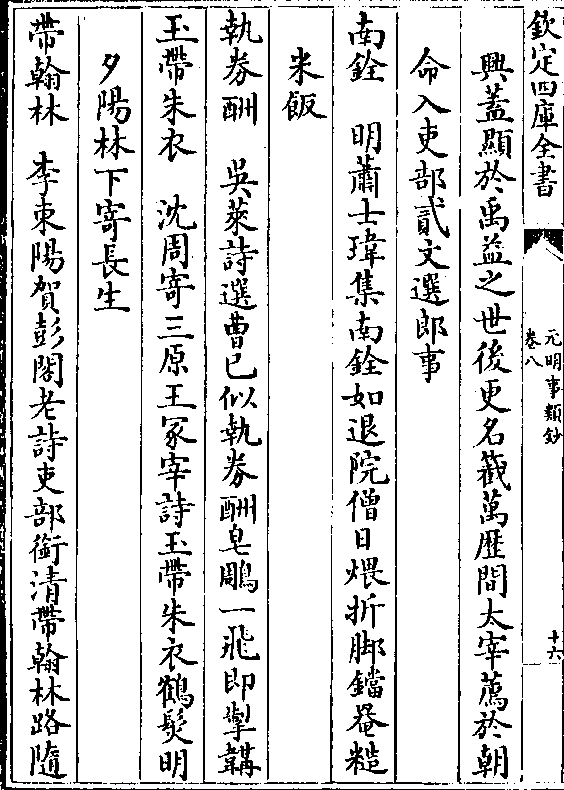 欽定四庫全書
元明事類鈔
卷八
十六
興蓋顯於禹益之世後更名籛萬歴間太宰薦於朝
命入吏部貳文選郎事
南銓　明蕭士瑋集南銓如退院僧日煨折脚鐺㷛糙
米飯
執劵酬　吳萊詩選曹已似執劵酬皂雕一飛即掣韝
玉帶朱衣　沈周寄三原王冢宰詩玉帶朱衣鶴髪明
夕陽林下寄長生
帶翰林　李東陽賀彭閣老詩吏部銜清帶翰林路隨